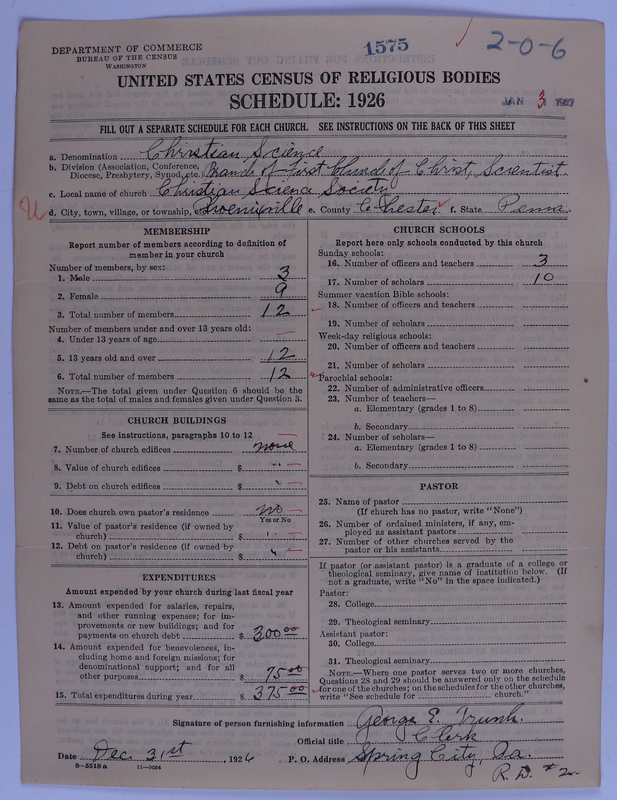 DEPARTMENT OF COMMERCE
BUREAU OF THE CENSUS
WASHINGTON
1575
2-0-6
UNITED STATES CENSUS OF RELIGIOUS BODIES
SCHEDULE: 1926
JAN 3 1927
FILL OUT A SEPARATE SCHEDULE FOR EACH CHURCH. SEE INSTRUCTIONS ON THE BACK OF THIS SHEET
a. Denomination Christian Science
b. Division (Association, Conference, Diocese, Presbytery, Synod, etc.) Branch of First Church of Christ, Scientist.
c. Local name of church Christian Science Society
d. City, town, village, or township, Phoenixville e. County Chester f. State Penna.
MEMBERSHIP
Report number of members according to definition of
member in your church
Number of members, by sex:
1. Male 3
2. Female 9
3. Total number of members 12
Number of members under and over 13 years old:
4. Under 13 years of age —
5. 13 years old and over 12
6. Total number of members 12
NOTE.—The total given under Question 6 should be the
same as the total of males and females given under Question 3.
CHURCH BUILDINGS
See instructions, paragraphs 10 to 12
7. Number of church edifices none
8. Value of church edifices $ "
9. Debt on church edifices $ "
10. Does church own pastor's residence no
Yes or No
11. Value of pastor's residence (if owned by
church) $ "
12. Debt on pastor's residence (if owned by
church) $ "
EXPENDITURES
Amount expended by your church during last fiscal year
13. Amount expended for salaries, repairs,
and other running expenses; for im-
provements or new buildings; and for
payments on church debt $ 300.00
14. Amount expended for benevolences, in-
cluding home and foreign missions; for
denominational support; and for all
other purposes $ 75.00
15. Total expenditures during year $ 375.00
CHURCH SCHOOLS
Report here only schools conducted by this church
Sunday schools:
16. Number of officers and teachers 3
17. Number of scholars 10
Summer vacation Bible schools:
18. Number of officers and teachers
19. Number of scholars
Week-day religious schools:
20. Number of officers and teachers
21. Number of scholars
Parochial schools:
22. Number of administrative officers
23. Number of teachers—
a. Elementary (grades 1 to 8)
b. Secondary
24. Number of scholars—
a. Elementary (grades 1 to 8)
b. Secondary
PASTOR
25. Name of pastor
(If church has no pastor, write "None")
26. Number of ordained ministers, if any, em-
ployed as assistant pastors
27. Number of other churches served by the
pastor or his assistants
If pastor (or assistant pastor) is a graduate of a college or
theological seminary, give name of institution below. (If
not a graduate, write "No" in the space indicated.)
Pastor:
28. College
29. Theological seminary
Assistant pastor:
30. College
31. Theological seminary
NOTE.—Where one pastor serves two or more churches,
Questions 28 and 29 should be answered only on the schedule
for one of the churches; on the schedules for the other churches,
write "See schedule for church."
Signature of person furnishing information George E. Trunk.
Official title Clerk
Date Dec. 31st, 1926 P. O. Address Spring City, Pa.
R. D. #2.
8-5518a 11-0034